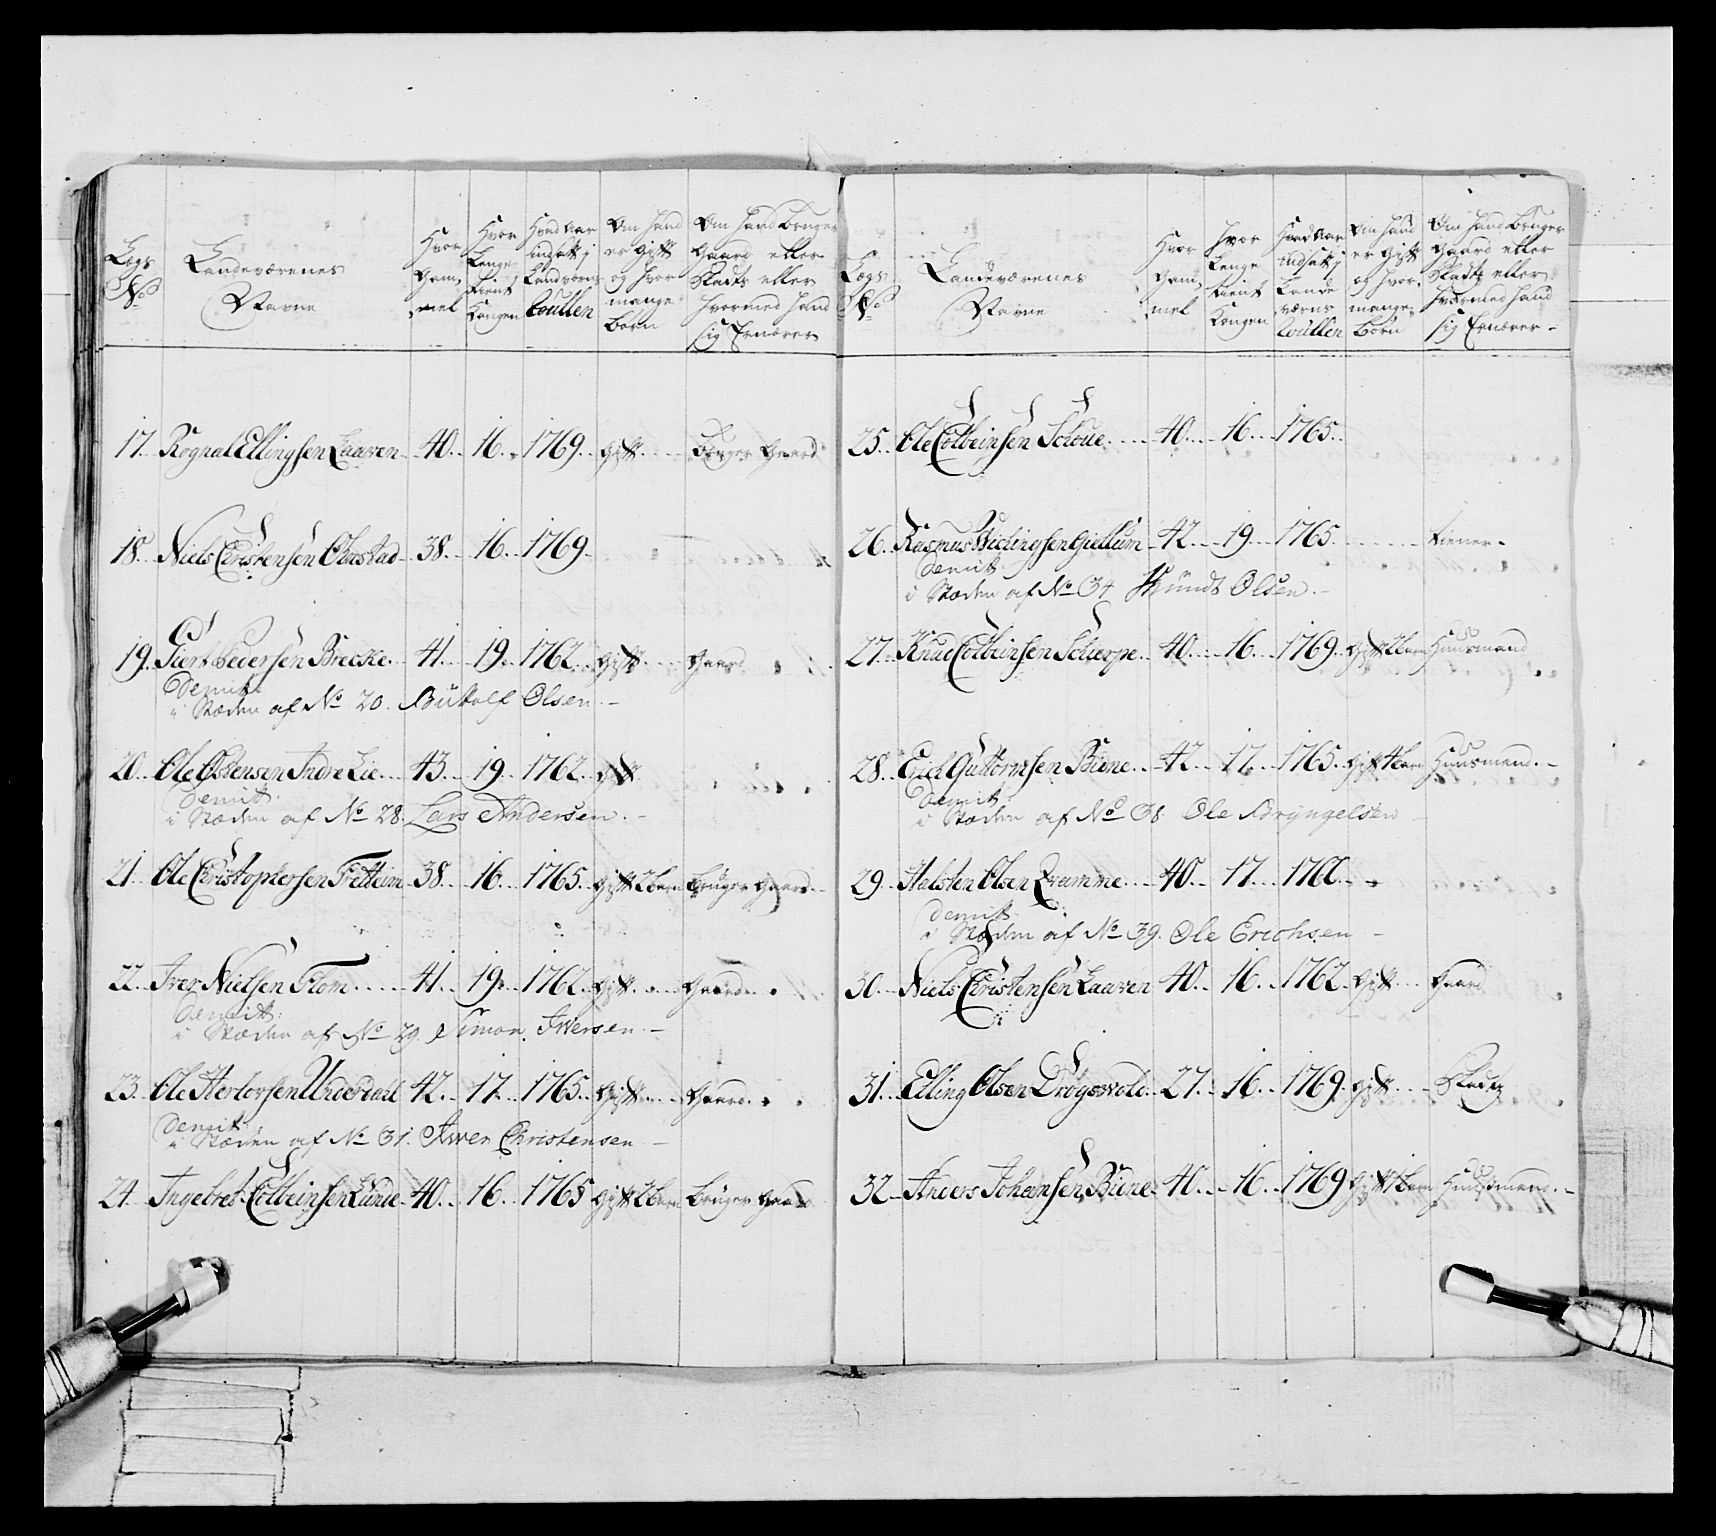 Lægs No
Landeværenes Navne
Hvor Gammel
Hvor Lenge tient Kongen
Hvad Aar indsatt i Landværns Roullen
Om Hand er Gift og Hvor mange Børn
Om Hand Bruger Gaard eller Pladts eller Hvormed Hand sig Ernærer
17. Rognal Ellingsen Laaven 40. 16. 1769. Gift Bruger Gaard
18. Niels Christensen Ohnstad 38. 16. 1769.
19. Siert Pedersen Brecke 41. 19. 1762. Gift Gaard
demit:
i Stæden af No 20. Buttolf Olsen.
20. Ole Ostensen Indre Lie 43. 19. 1762. Gift
demit:
i Stæden af No 28. Lars Andersen.
21. Ole Christophersen Frettem 38. 16. 1765. Gift 2 Børn Bruger Gaard
22. Iver Nielsen Flom 41. 19. 1762. Gift Gaard
Demitt:
i Stæden af No 29. Simon Iwersen
23. Ole Herlovsen Underdahl 42. 17. 1765. Gift Gaard
demit:
i Stæden af No 31. Awen Christensen
24. Ingebret Colbeinsen Lunde 40. 16. 1765 Gift 2 Børn Bruger Gaard
Lægs No
Landeværenes Navne
Hvor Gammel
Hvor Lenge tient Kongen
Hvad Aar indsatt i Lande værns Roullen
Om Hand er Gift og Hvor mange Børn
Om Hand Bruger Gaard eller Pladts eller Hvormed Hand sig Ernærer
25. Ole Colbeinsen Schoue 40. 16. 1765.
26. Rasmus Giellum 42. 19. 1765. tiener
demit:
i Stæden af No 34 Olsen
27. Knud Colbeinsen Schierpe 40. 16. 1769. Gift 2 Børn Huusmand
28. Erich Guttormsen Biene 42. 17. 1765. Gift 4 Børn Huusmand
demit:
i Stæden af No 38. Ole Bryngelsen
29. Halsten Olsen Qvamme 40. 17. 1766.
demit:
i Stæden af No 39. Ole Erichsen
30. Niels Christensen Laaven 40. 16. 1762. Gift Gaard
31. Elling Olsen Drøgsvold 27. 16. 1769. Gift Pladtz
32. Anders Johansen Biene 40. 16. 1769 Gift 1 Barn Huusmand